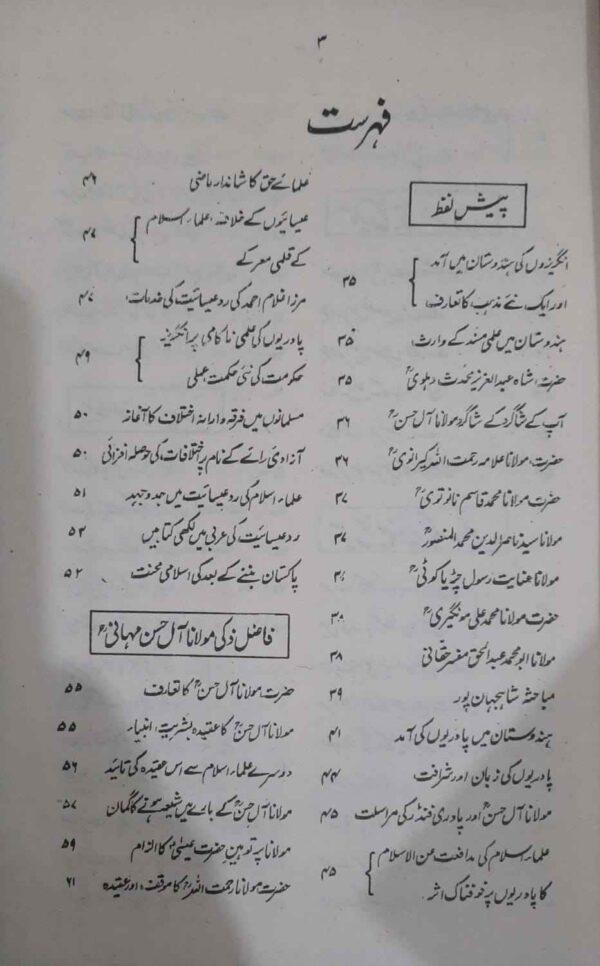 ۳
فہرست
پیش لفظ
انگریزوں کی ہندوستان میں آمد
اور ایک نئے مذہب کا تعارف ۳۵
ہندوستان میں علمی مسند کے وارث ۳۵
حضرت شاہ عبدالعزیز محدث دہلویؒ ۳۵
آپ کے شاگرد کے شاگرد مولانا آل حسنؒ ۳۶
حضرت مولانا علامہ رحمت اللہ کیرانویؒ ۳۶
حضرت مولانا محمد قاسم نانوتویؒ ۳۷
مولانا سید ناصر الدین محمد المنصورؒ ۳۷
مولانا عنایت رسول چڑیا کوٹیؒ
حضرت مولانا محمد علی مونگیریؒ ۳۸
مولانا ابو محمد عبدالحق مفسر حقانی ۳۸
مباحثہ شاہجہان پور ۳۹
ہندوستان میں پادریوں کی آمد ۴۱
پادریوں کی زبان اور شرافت ۴۴
مولانا آل حسنؒ اور پادری فنڈر کی مراسلت ۴۵
علماء اسلام کی مدافعت عن الاسلام
کا پادریوں پر خوفناک اثر ۴۵
علمائے حق کا شاندار ماضی ۴۶
عیسائیوں کے خلاف علماء اسلام
کے قلمی معرکے ۴۷
مرزا غلام احمد کی رد عیسائیت کی خدمات ۴۷
پادریوں کی علمی ناکامی پر انگریز
حکومت کی نئی حکمت عملی ۴۹
مسلمانوں میں فرقہ وارانہ اختلاف کا آغاز ۵۰
آزادی رائے کے نام پر اختلافات کی حوصلہ افزائی ۵۰
علماء اسلام کی رد عیسائیت میں جدوجہد ۵۱
رد عیسائیت کی عربی میں لکھی کتابیں ۵۲
پاکستان بننے کے بعد کی اسلامی محنت ۵۲
فاضل ذکی مولانا آل حسن مہانیؒ
حضرت مولانا آل حسنؒ کا تعارف ۵۵
مولانا آل حسنؒ کا عقیدہ بشریت انبیاء ۵۵
دوسرے علماء اسلام سے اس عقیدہ کی تائید ۵۶
مولانا آل حسنؒ کے بارے میں شیعہ ہونے کا گمان ۵۷
مولانا پر توہین حضرت عیسیٰؑ کا الزام ۵۹
حضرت مولانا رحمت اللہؒ کا موقف اور عقیدہ ۶۱